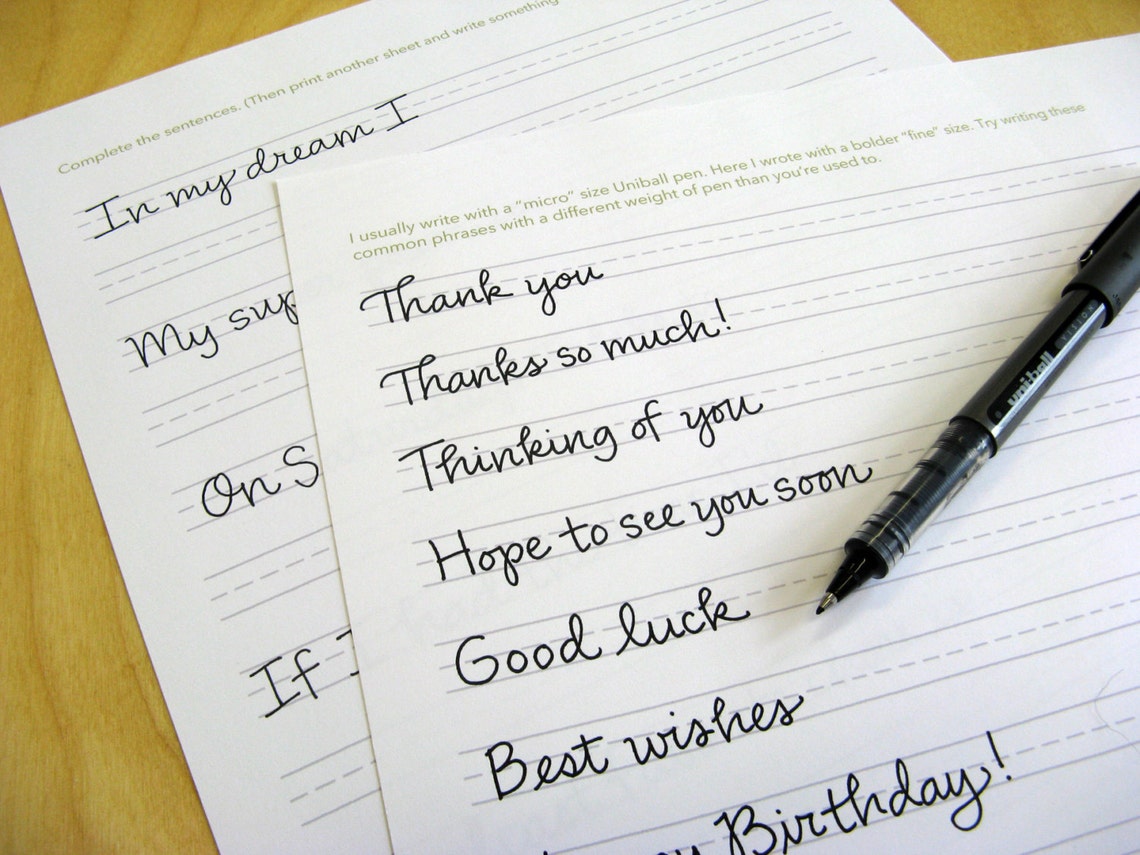 Complete the sentences. (Then print another sheet and write something
In my dream I
My sup
On S
If I
I usually write with a “micro” size Uniball pen. Here I wrote with a bolder “fine” size. Try writing these
common phrases with a different weight of pen than you’re used to.
Thank you
Thanks so much!
Thinking of you
Hope to see you soon
Good luck
Best wishes
Birthday!
uniball
VISION